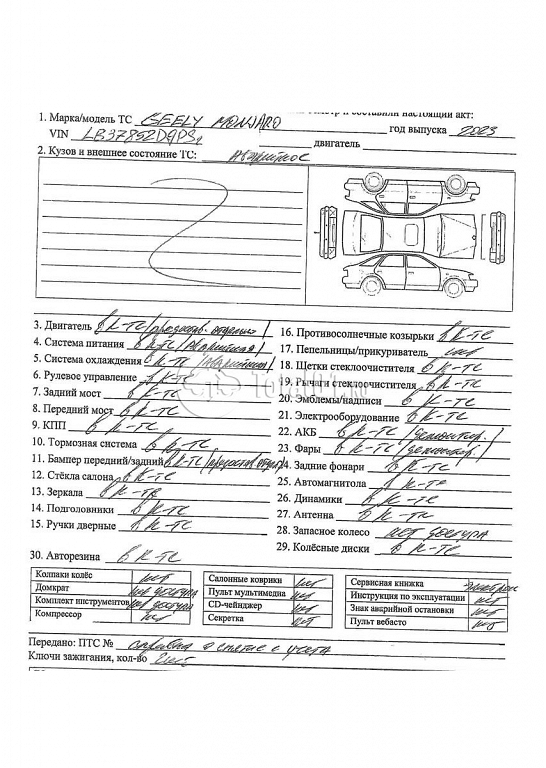 1. Марка/модель ТС GEELY MONJARO
год выпуска 2023
VIN LB37852D9PS
двигатель
2. Кузов и внешнее состояние ТС:
3. Двигатель в к-те /предостав. отдельно/
4. Система питания в к-те /аварийная/
5. Система охлаждения в к-те /аварийная/
6. Рулевое управление в к-те
7. Задний мост в к-те
8. Передний мост в к-те
9. КПП в к-те
10. Тормозная система в к-те
11. Бампер передний/задний в к-те
12. Стёкла салона в к-те
13. Зеркала в к-те
14. Подголовники в к-те
15. Ручки дверные в к-те
16. Противосолнечные козырьки в к-те
17. Пепельницы/прикуриватель
18. Щетки стеклоочистителя в к-те
19. Рычаги стеклоочистителя в к-те
20. Эмблемы/надписи в к-те
21. Электрооборудование в к-те
22. АКБ в к-те /демонтир./
23. Фары в к-те /демонтир./
24. Задние фонари в к-те
25. Автомагнитола в к-те
26. Динамики в к-те
27. Антенна в к-те
28. Запасное колесо нет доступа
29. Колёсные диски в к-те
30. Авторезина в к-те
Колпаки колёс нет
Домкрат нет доступа
Комплект инструментов нет доступа
Компрессор нет
Салонные коврики нет
Пульт мультимедиа нет
CD-чейнджер нет
Секретка нет
Сервисная книжка
Инструкция по эксплуатации нет
Знак аварийной остановки нет
Пульт вебасто нет
Передано: ПТС № справка о снятие с учета
Ключи зажигания, кол-во